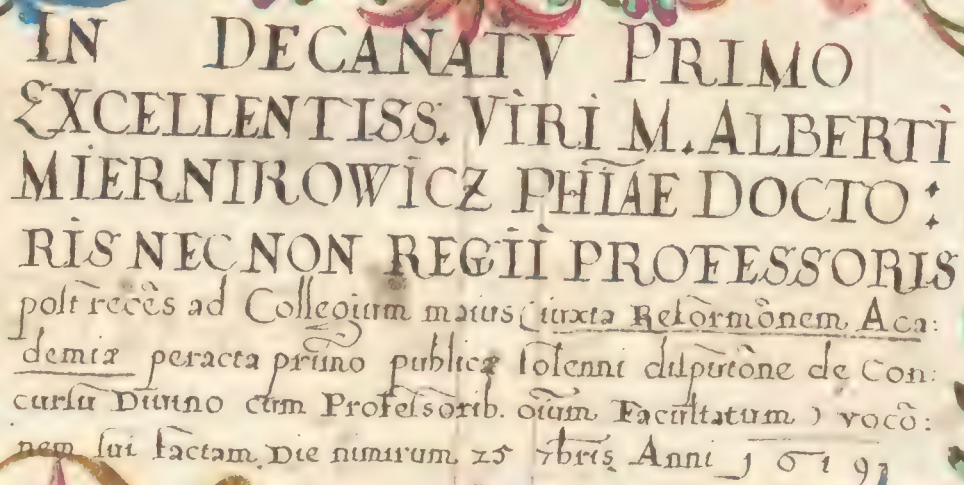 IN DECANATV PRIMO
EXCELLENTISS. VIRI M. ALBERTI
MIERNIKOWICZ PHIAE DOCTO:
RIS NEC NON REGII PROFESSORIS
post recēs ad Collegium maius (iuxta Reformōnem Aca:
demiæ peracta primo publicæ solenni disputōne de Con:
cursu Diuino cum Professorib. oīum Facultatum) vocō:
nem sui factam Die nimirum 25 7bris Anni 1619